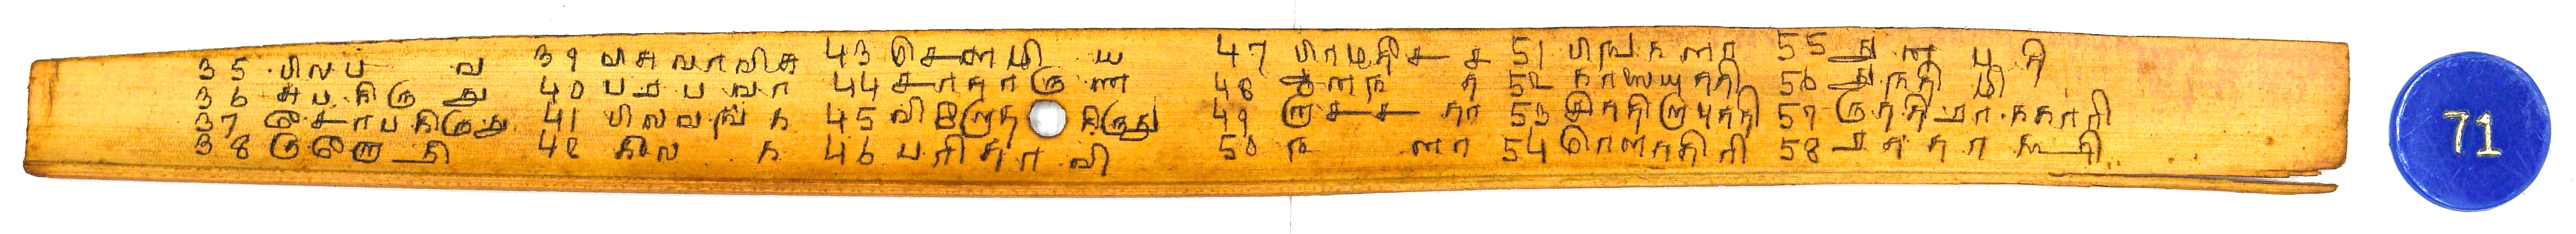 35 பிலப வ 39 விசுவாவிசு 43 செளமி ய 47 பிரமாதீச ச 51 பிங்களா 55 துன மதி
36 சுபகிருது 40 பராபவா 44 சாதாரு ண 48 ஆனந த 52 காலயுகதி 56 துநதிமி
37 சோபகிருது 41 பிலவங்க 45 விரோத கிருது 49 ருசசதா 53 இததிருபததி 57 ருததிரா.ககாரி
38 குரோதி 42 கீல க 46 பரிதாவி 50 ந ளா 54 ரௌததிரி 58 ரததாகூி